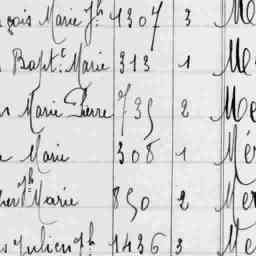 çois Marie Jh 1307 3 Me
Bapt.te Marie 313 1 Me
Marie Pierre 735 2 Me
Marie 308 1 Mér
Jh Marie 850 2 Mer
Julien Jh 1436 3 Me